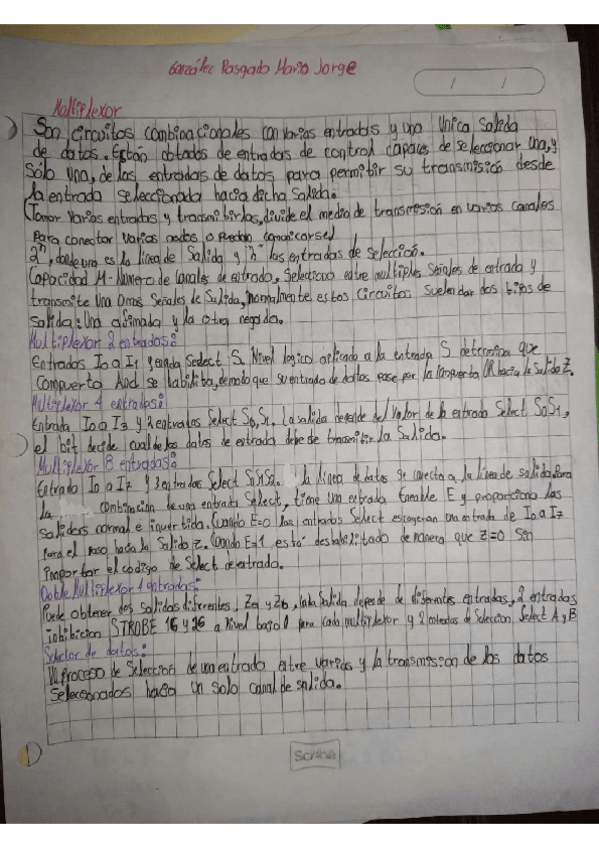 González Rasgado Mario Jorge
/ /
Multiplexor
Son Circuitos combinacionales con varias entradas y una única salida
de datos. Están obtados de entradas de control capaces de seleccionar una, y
sólo una, de las entradas de datos para permitir su transmisión desde
la entrada seleccionada hacia dicha salida.
Tomar varias entradas y transmitirlas, divide el medio de transmisión en varios canales
para conectar varios nodos o puedan comunicarse
2ⁿ, donde uno es la línea de Salida y "n" las entradas de selección.
Capacidad M-Numero de canales de entrada, Selecciona entre multiples señales de entrada y
transmite una Señales de Salida, normalmente estos Circuitos suelen dar dos tipos de
salida: Una afirmada y la otra negada.
Multiplexor 2 entradas:
Entradas I0 a I1 Select S. Nivel logico aplicado a la entrada S determina que
Compuerta And se habilita, de modo que su entrada de datos pase por la compuerta OR hacia la salida Z.
Multiplexor 4 entradas:
Entrada I0 a I3 y 2 entradas Select S0, S1. La salida depende del valor de la entrada Select S0 S1,
el bit decide cual de los datos de entrada debe de transmitir la Salida.
Multiplexor 8 entradas:
Entrada I0 a I7 y 3 entradas Select la linea de datos se conecta a la linea de salida. Para
la Combinación de una entrada Select, tiene una entrada Enable E y proporciona las
salidas normal e invertida. Cuando E=0 las entradas Select escogeran una entrada de I0 a I7
para el paso hacia la Salida Z. Cuando E=1 está deshabilitado de manera que Z=0 Sin
importar el codigo de Select de entrada.
Doble Multiplexor 4 entradas:
Puede obtener dos salidas diferentes, Za y Zb, cada Salida depende de diferentes entradas, 2 entradas
inhibicion STROBE 1G y 2G a Nivel bajo 0 para cada multiplexor y 2 entradas de Seleccion Select A y B
Selector de datos:
El proceso de Selección de una entrada entre varias y la transmission de los datos
Seleccionados hacia un solo canal de salida.
Scribe